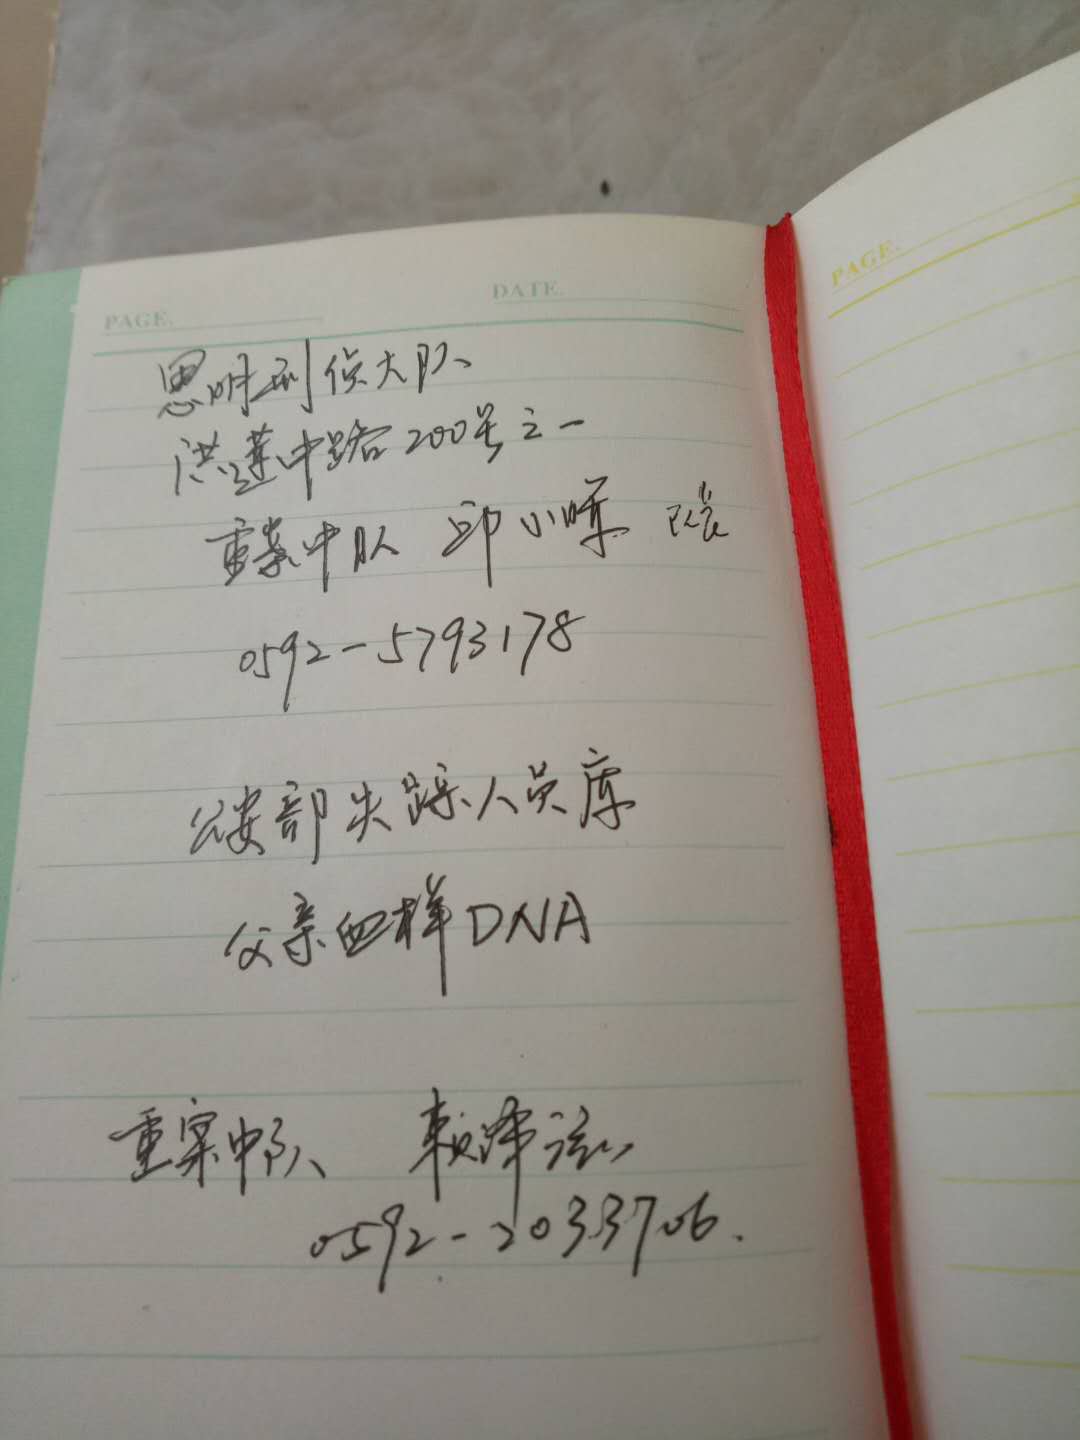 PAGE.
DATE.
PAGE.
思明刑侦大队
洪莲中路200号之一
重案中队 邱小晖 队长
0592-5793178
公安部失踪人员库
父亲血样DNA
重案中队 赖泽
0592-2033706.